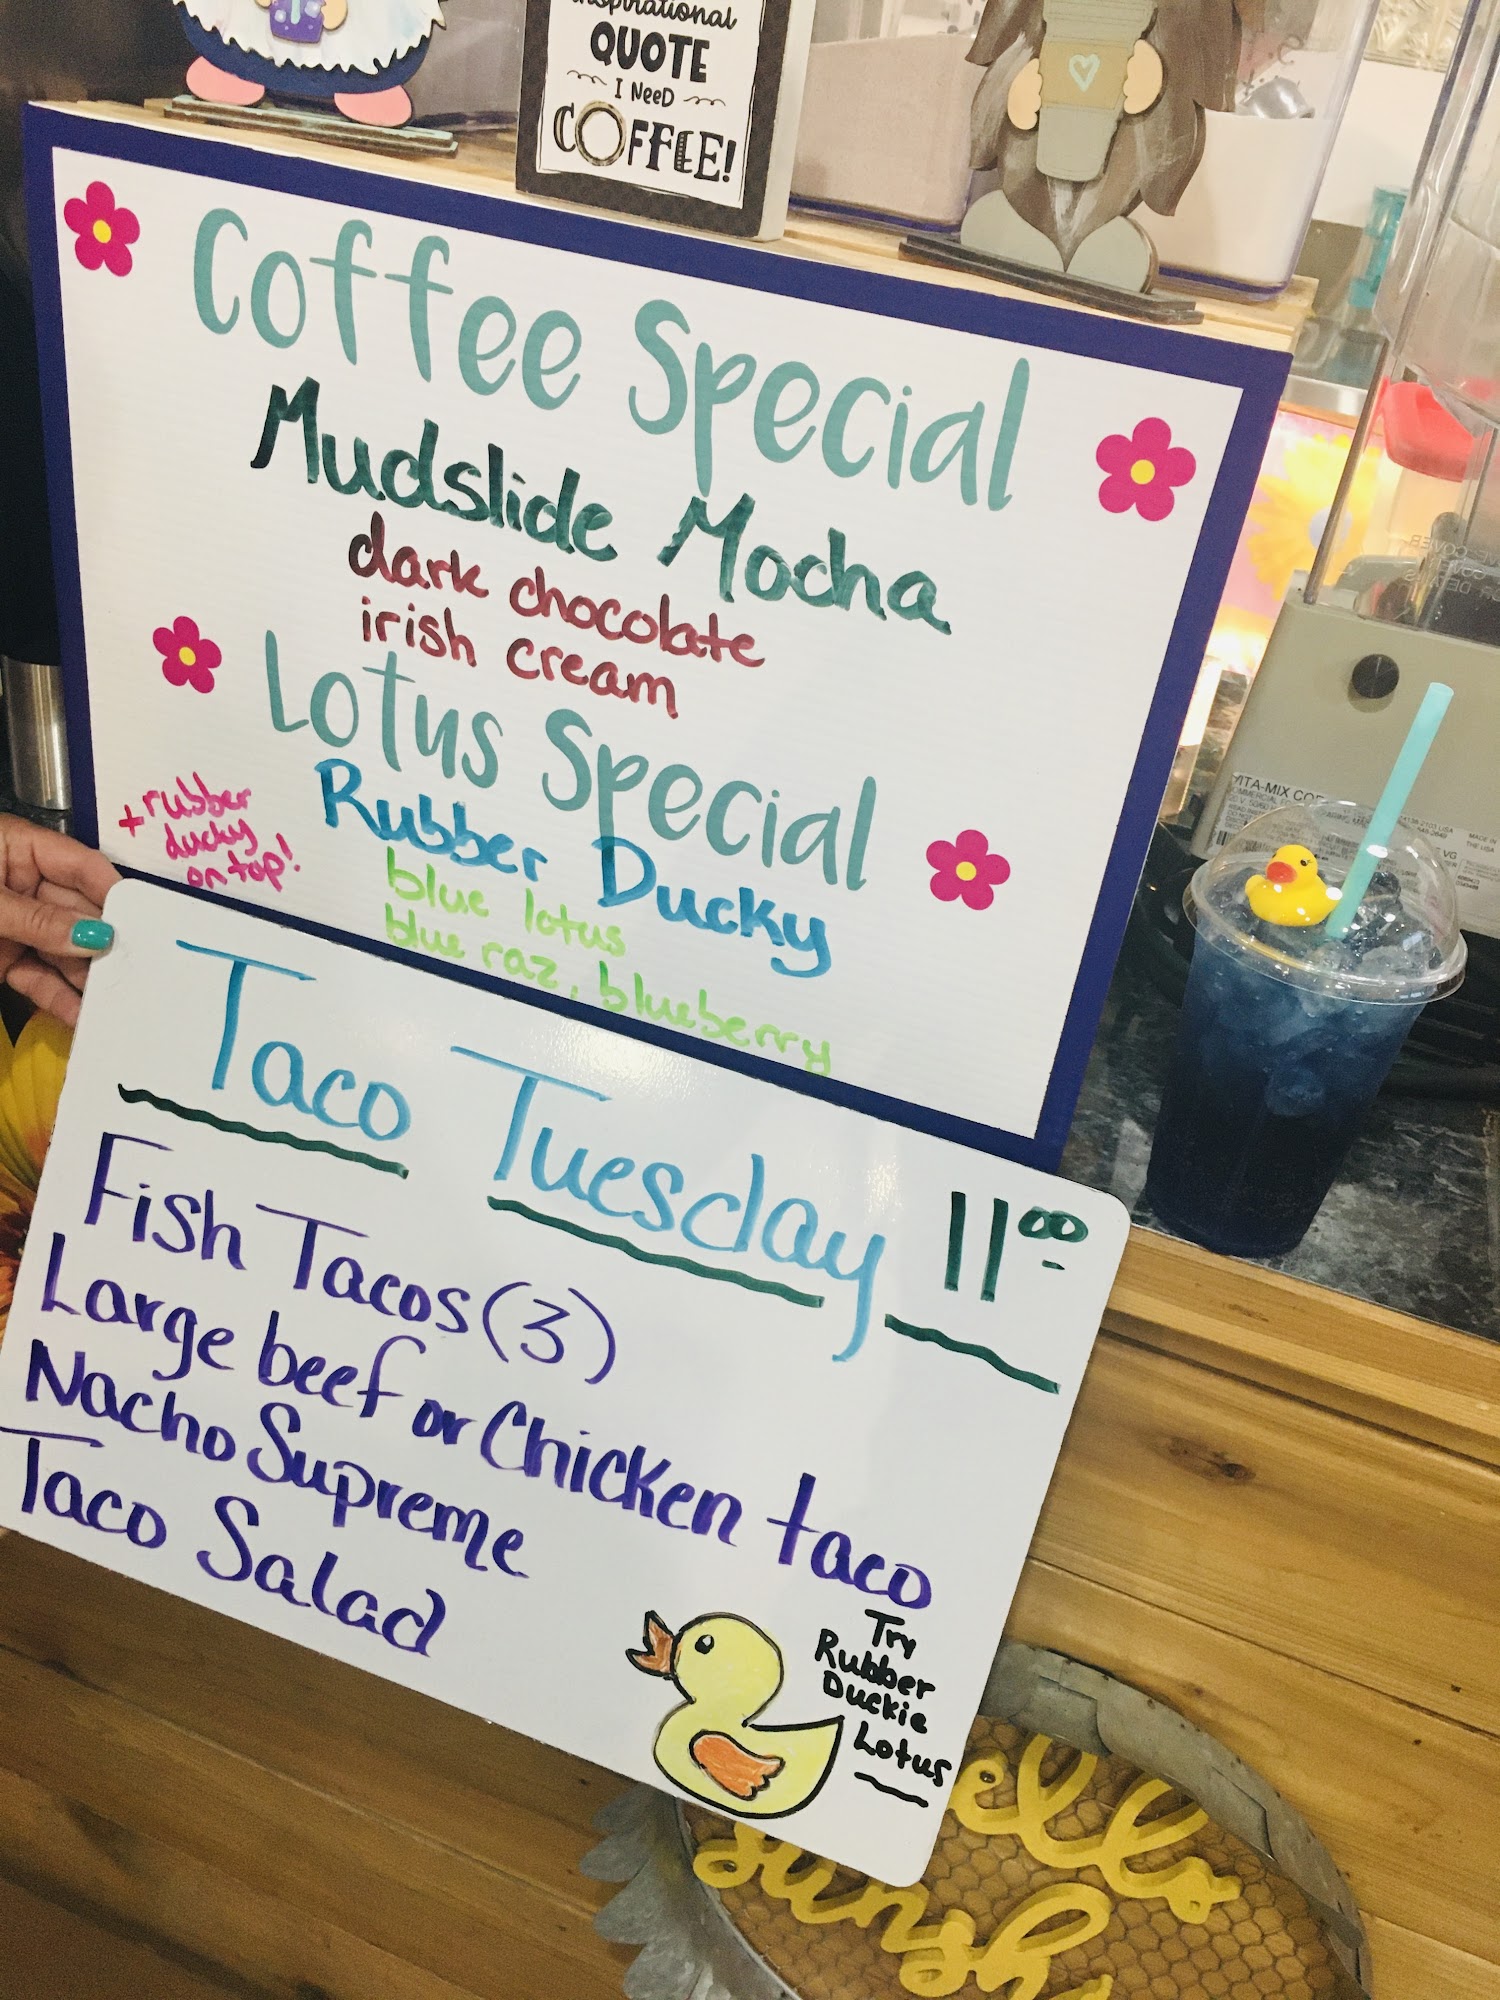 Inspirational
QUOTE
I NeeD
COFFEE!
Coffee Special
Mudslide Mocha
dark chocolate
irish cream
Lotus Special
Rubber Ducky
blue lotus
blue raz, blueberry
+ rubber
ducky
on top!
Taco Tuesday 11⁰⁰
Fish Tacos (3)
Large beef or Chicken taco
Nacho Supreme
Taco Salad
Try
Rubber
Duckie
Lotus
VITA-MIX COR
MADE IN
THE USA
ello
sunsh